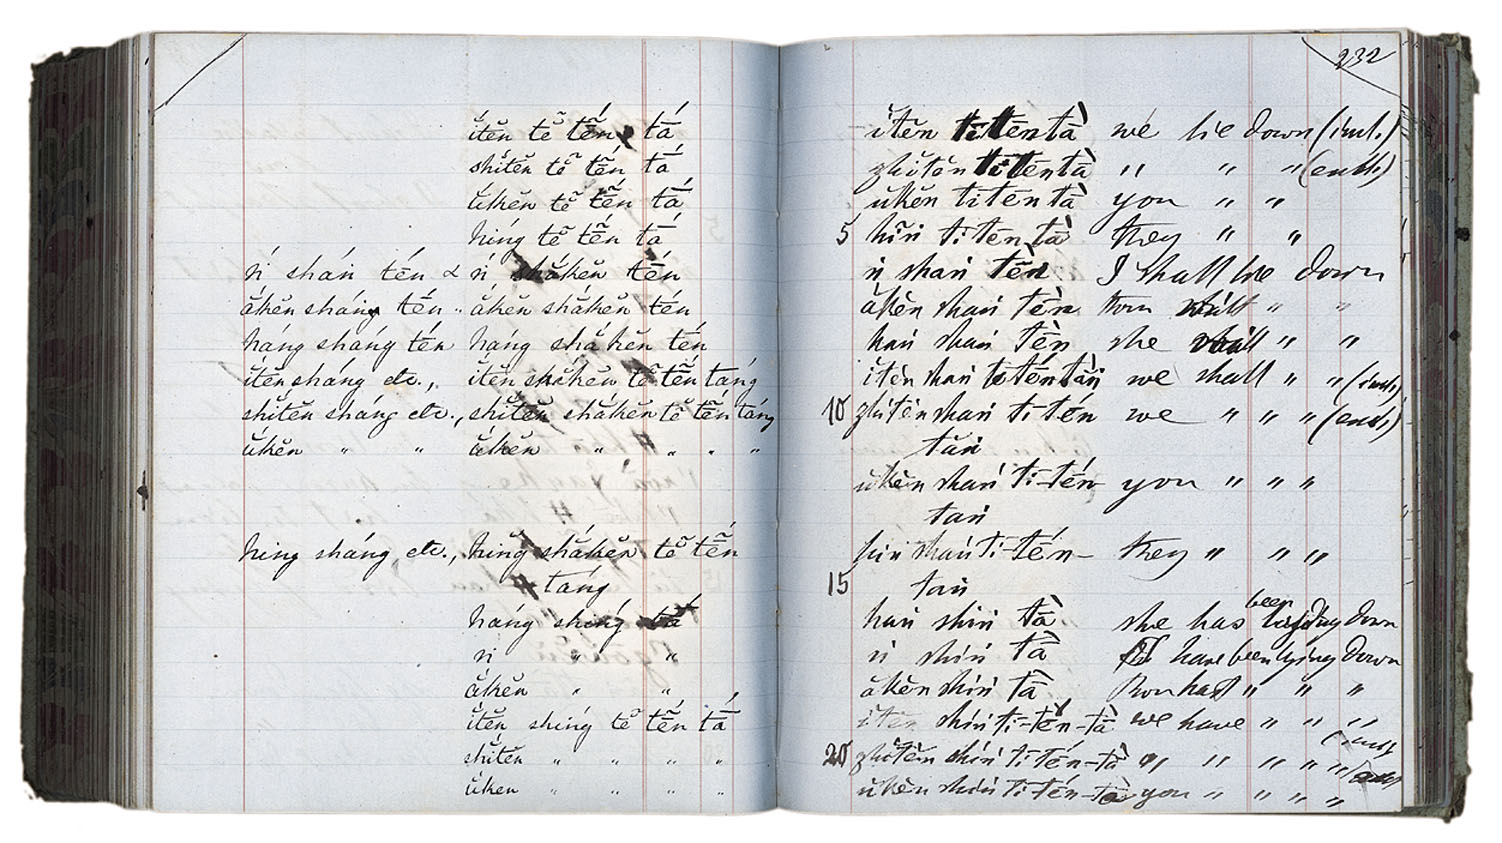 ĭtĕn tĕ̃ tĕ́n tá
shĭtĕn tĕ̃ tĕ́n tá
ŭkĕn tĕ̃ tĕ́n tá
hĭng tĕ̃ tĕ́n tá
ṅ sháṅ tén & ṅ shákĕn tén
ákĕn sháng tén " ákĕn shákĕn tén
háng sháng tén háng shákĕn tén
ĭtĕn sháng etc., ĭtĕn shákĕn tĕ̃ tĕ́n táng
shĭtĕn sháng etc., shĭtĕn shákĕn tĕ̃ tĕ́n táng
ŭkĕn " " ŭkĕn " " " "
hĭng sháng etc., hĭng shákĕn tĕ̃ tĕ́n
táng
háng shĭng tá
ṅ " "
ákĕn " "
ĭtĕn shĭng tĕ̃ tĕ́n tá
shĭtĕn " " " "
ŭkĕn " " " "
232
ĭtĕn ti tēn tà we lie down (incl.)
zhitĕn ti tēn tà " " " (excl.)
ŭkĕn ti tēn tà you " "
5 hiṅ ti tēn tà they " "
ṅ shaṅ tèn I shall lie down
ākĕn shaṅ tèn thou wilt " "
haṅ shaṅ tèn she shall " "
ĭtĕn shaṅ ti tén tàṅ we shall " " (incl.)
10 zhitĕn shaṅ ti-tén we " " " (excl.)
tāṅ
ŭkĕn shaṅ ti-tén you " " "
taṅ
hiṅ shaṅ ti-tén- they " " "
15 taṅ
haṅ shiṅ tà she has been lying down
ṅ shiṅ tà I have been lying down
ākĕn shiṅ tà thou hast " " "
ĭtĕn shiṅ ti-tén-tà we have " " "
(incl.)
20 zhitĕn shiṅ ti-tén-tà " " " " " (excl.)
ŭkĕn shiṅ ti-tén-tà you " " " "